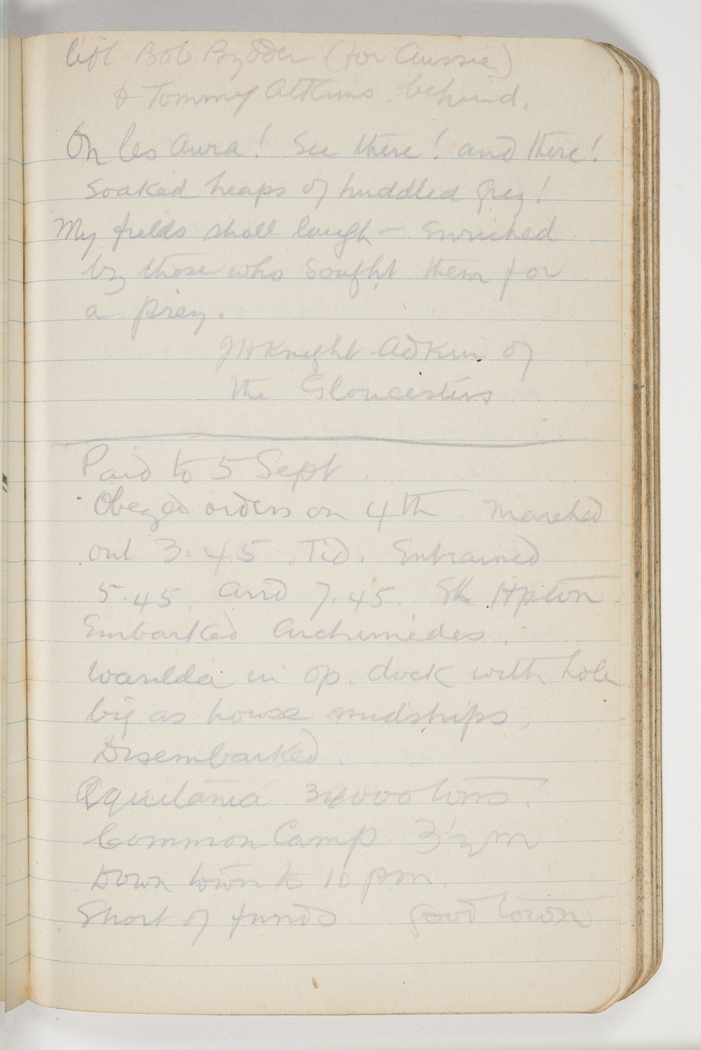 left Bob Bydder (for Aussie)
& Tommy Atkins behind.
Oh les Aura! See there! and there!
Soaked heaps of huddled grey!
My fields shall laugh – Enriched
by those who sought them for
a prey.
JH Knight-Adkin of
the Gloucesters
Paid to 5 Sept.
Obeyed orders on 4th Marched
out 3.45. Tid. Entrained
5.45 and 7.45. Sth Hpton
Embarked Archimedes.
Warilda in op. dock with hole
big as house midships,
Disembarked.
Aquitania 34000 tons.
Common Camp 3½ m
Down town to 10 pm
Short of funds good town